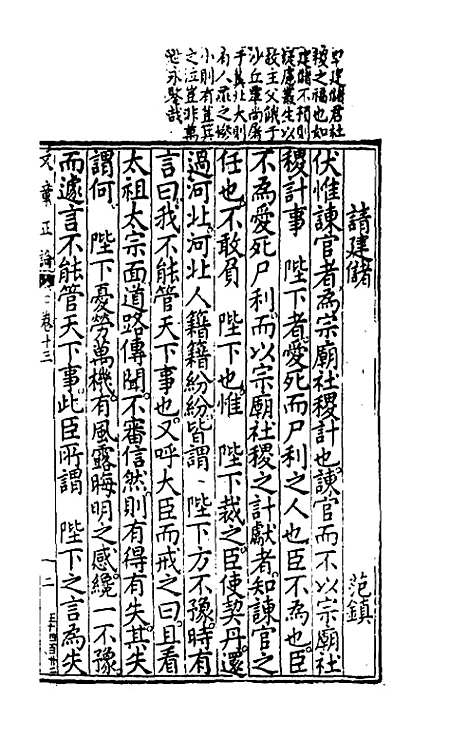 早建儲君社
稷之福也如
建儲不預則
疑慮叢生以
致主父餓于
沙丘
小則有
世永鑒哉
請建儲
范鎮
伏惟諫官者為宗廟社稷計也諫官而不以宗廟社
稷計事 陛下者愛死而尸利之人也臣不為也臣
不為愛死尸利而以宗廟社稷之計獻者知諫官之
任也不敢負 陛下也惟 陛下裁之臣使契丹還
過河北河北人籍籍紛紛皆謂 陛下方不豫時有
言曰我不能管天下事也又呼大臣而戒之曰且看
太祖太宗面道路傳聞不審信然則有得有失其失
謂何 陛下憂勞萬機有風露晦明之感纔一不豫
而遽言不能管天下事此臣所謂 陛下之言為失
文章正論 卷十三
二